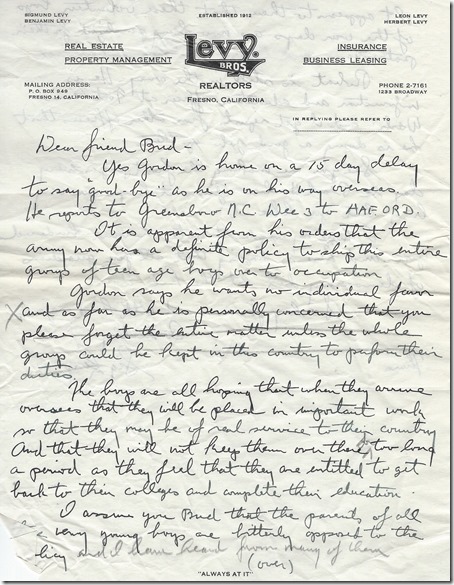 SIGMUND LEVY
BENJAMIN LEVY
ESTABLISHED 1912
LEON LEVY
HERBERT LEVY
REAL ESTATE
PROPERTY MANAGEMENT
Levy BROS.
INSURANCE
BUSINESS LEASING
REALTORS
FRESNO, CALIFORNIA
MAILING ADDRESS:
P. O. BOX 949
FRESNO 14, CALIFORNIA
PHONE 2-7161
1233 BROADWAY
IN REPLYING PLEASE REFER TO
Dear friend Bud -
Yes Gordon is home on a 15 day delay
to say "good-bye" as he is on his way overseas.
He reports to Greensboro N.C. Dec 3 to AAFORD.
It is apparent from his orders that the
army now has a definite policy to ship this entire
group of teen age boys over to occupation
Gordon says he wants no individual favor
X and as far as he is personally concerned that you
please forget the entire matter unless the whole
group could be kept in this country to perform their
duties
The boys are all hoping that when they arrive
overseas that they will be placed in important work
so that they may be of real service to their country
And that they will not keep them over there too long
a period as they feel that they are entitled to get
back to their colleges and complete their education.
I assure you Bud that the parents of all
very young boys are bitterly opposed to the
and I have heard from many of them
(over)
"ALWAYS AT IT"